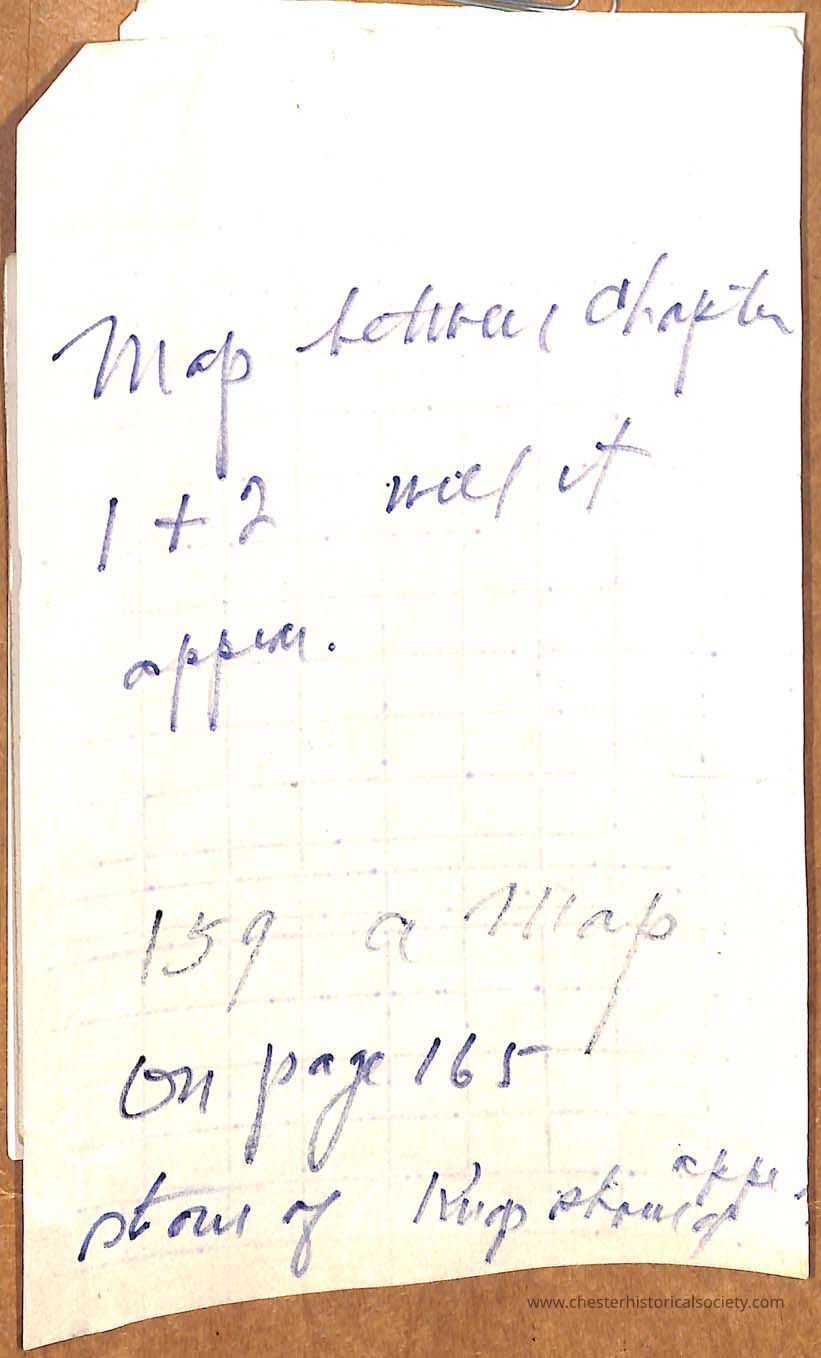 Map between Chapter
1 + 2 will it
appear.
159 a Map
On page 165
stone of should appe.
www.chesterhistoricalsociety.com